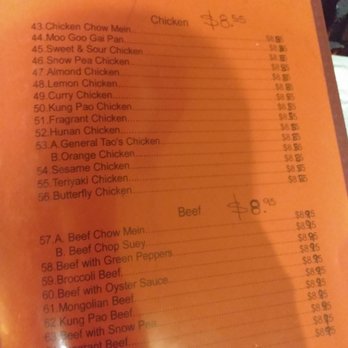 Chicken $8.95
43.Chicken Chow Mein
44.Moo Goo Gai Pan
45.Sweet & Sour Chicken
46.Snow Pea Chicken
47.Almond Chicken
48.Lemon Chicken
49.Curry Chicken
50.Kung Pao Chicken
51.Fragrant Chicken
52.Hunan Chicken
53.A.General Tao's Chicken
B.Orange Chicken
54.Sesame Chicken
55.Teriyaki Chicken
56.Butterfly Chicken
Beef $8.95
57.A. Beef Chow Mein $8.95
B. Beef Chop Suey $8.95
58 Beef with Green Peppers $8.95
59.Broccoli Beef $8.95
60.Beef with Oyster Sauce $8.95
61.Mongolian Beef $8.95
62 Kung Pao Beef $8.95
63 Beef with Snow Pea $8.95
Beef $8.95